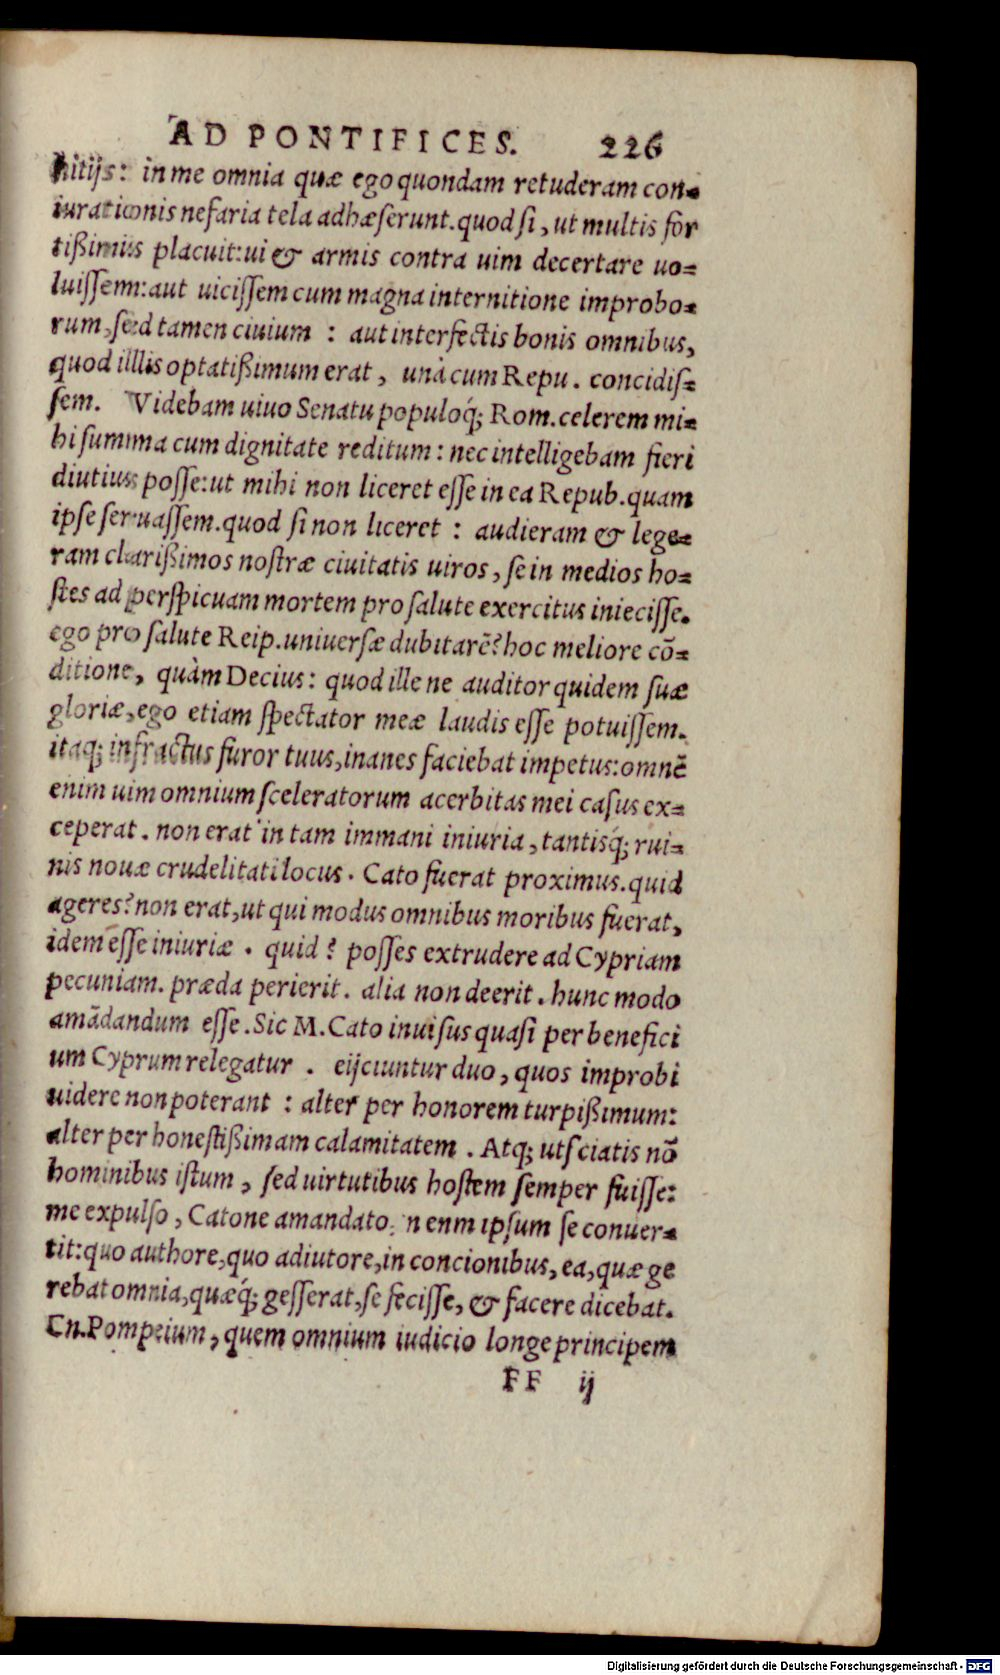 AD PONTIFICES. 226
nitijs: in me omnia quæ ego quondam retuderam con=
iurationis nefaria tela adhæserunt. quod si, ut multis for
tißimis placuit: ui & armis contra uim decertare uo=
luissem: aut uicissem cum magna internitione improbo=
rum, sed tamen ciuium : aut interfectis bonis omnibus,
quod illis optatißimum erat, unà cum Repu. concidis=
sem. Videbam uiuo Senatu populoq́; Rom. celerem mi=
hi summa cum dignitate reditum: nec intelligebam fieri
diutius posse: ut mihi non liceret esse in ea Repub. quam
ipse seruassem. quod si non liceret : audieram & lege=
ram clarißimos nostræ ciuitatis uiros, se in medios ho=
stes ad perspicuam mortem pro salute exercitus iniecisse.
ego pro salute Reip. uniuersæ dubitarē? hoc meliore cō=
ditione, quàm Decius: quod ille ne auditor quidem suæ
gloriæ, ego etiam spectator meæ laudis esse potuissem.
itaq; infractus furor tuus, inanes faciebat impetus: omnē
enim uim omnium sceleratorum acerbitas mei casus ex=
ceperat. non erat in tam immani iniuria, tantisq́; rui=
nis nouæ crudelitati locus. Cato fuerat proximus. quid
ageres? non erat, ut qui modus omnibus moribus fuerat,
idem esse iniuriæ. quid? posses extrudere ad Cypriam
pecuniam. præda perierit. alia non deerit. hunc modo
amādandum esse. Sic M. Cato inuisus quasi per benefici
um Cyprum relegatur. eijciuntur duo, quos improbi
uidere non poterant : alter per honorem turpißimum:
alter per honestißimam calamitatem. Atq; ut sciatis nō
hominibus istum, sed uirtutibus hostem semper fuisse:
me expulso, Catone amandato. n enm ipsum se conuer=
tit: quo authore, quo adiutore, in concionibus, ea, quæ ge
rebat omnia, quæq́; gesserat, se fecisse, & facere dicebat.
Cn. Pompeium, quem omnium iudicio longe principem
FF ij
Digitalisierung gefördert durch die Deutsche Forschungsgemeinschaft - DFG